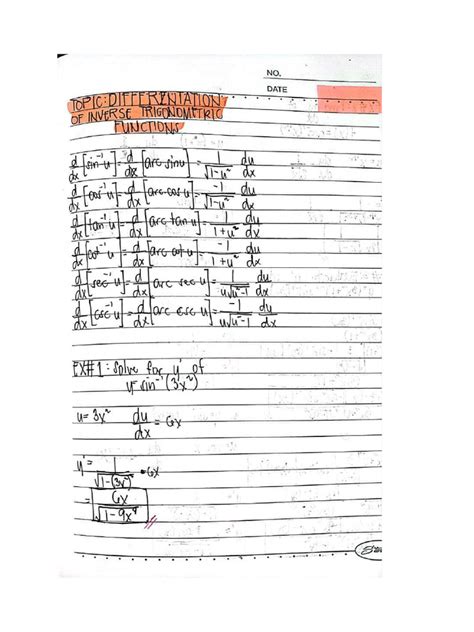 NO.
DATE
TOPIC: DIFFERENTIATION
OF INVERSE TRIGONOMETRIC
FUNCTIONS
d/dx [sin⁻¹u] = d/dx [arc sin u] = 1/√1-u² du/dx
d/dx [cos⁻¹u] = d/dx [arc cos u] = -1/√1-u² du/dx
d/dx [tan⁻¹u] = d/dx [arc tan u] = 1/1+u² du/dx
d/dx [cot⁻¹u] = d/dx [arc cot u] = -1/1+u² du/dx
d/dx [sec⁻¹u] = d/dx [arc sec u] = 1/u√u²-1 du/dx
d/dx [csc⁻¹u] = d/dx [arc csc u] = -1/u√u²-1 du/dx
EX#1: Solve for y' of
y=sin⁻¹(3x²)
u=3x² du/dx = 6x
y' = 1/√1-(3x²)² • 6x
= 6x/√1-9x⁴